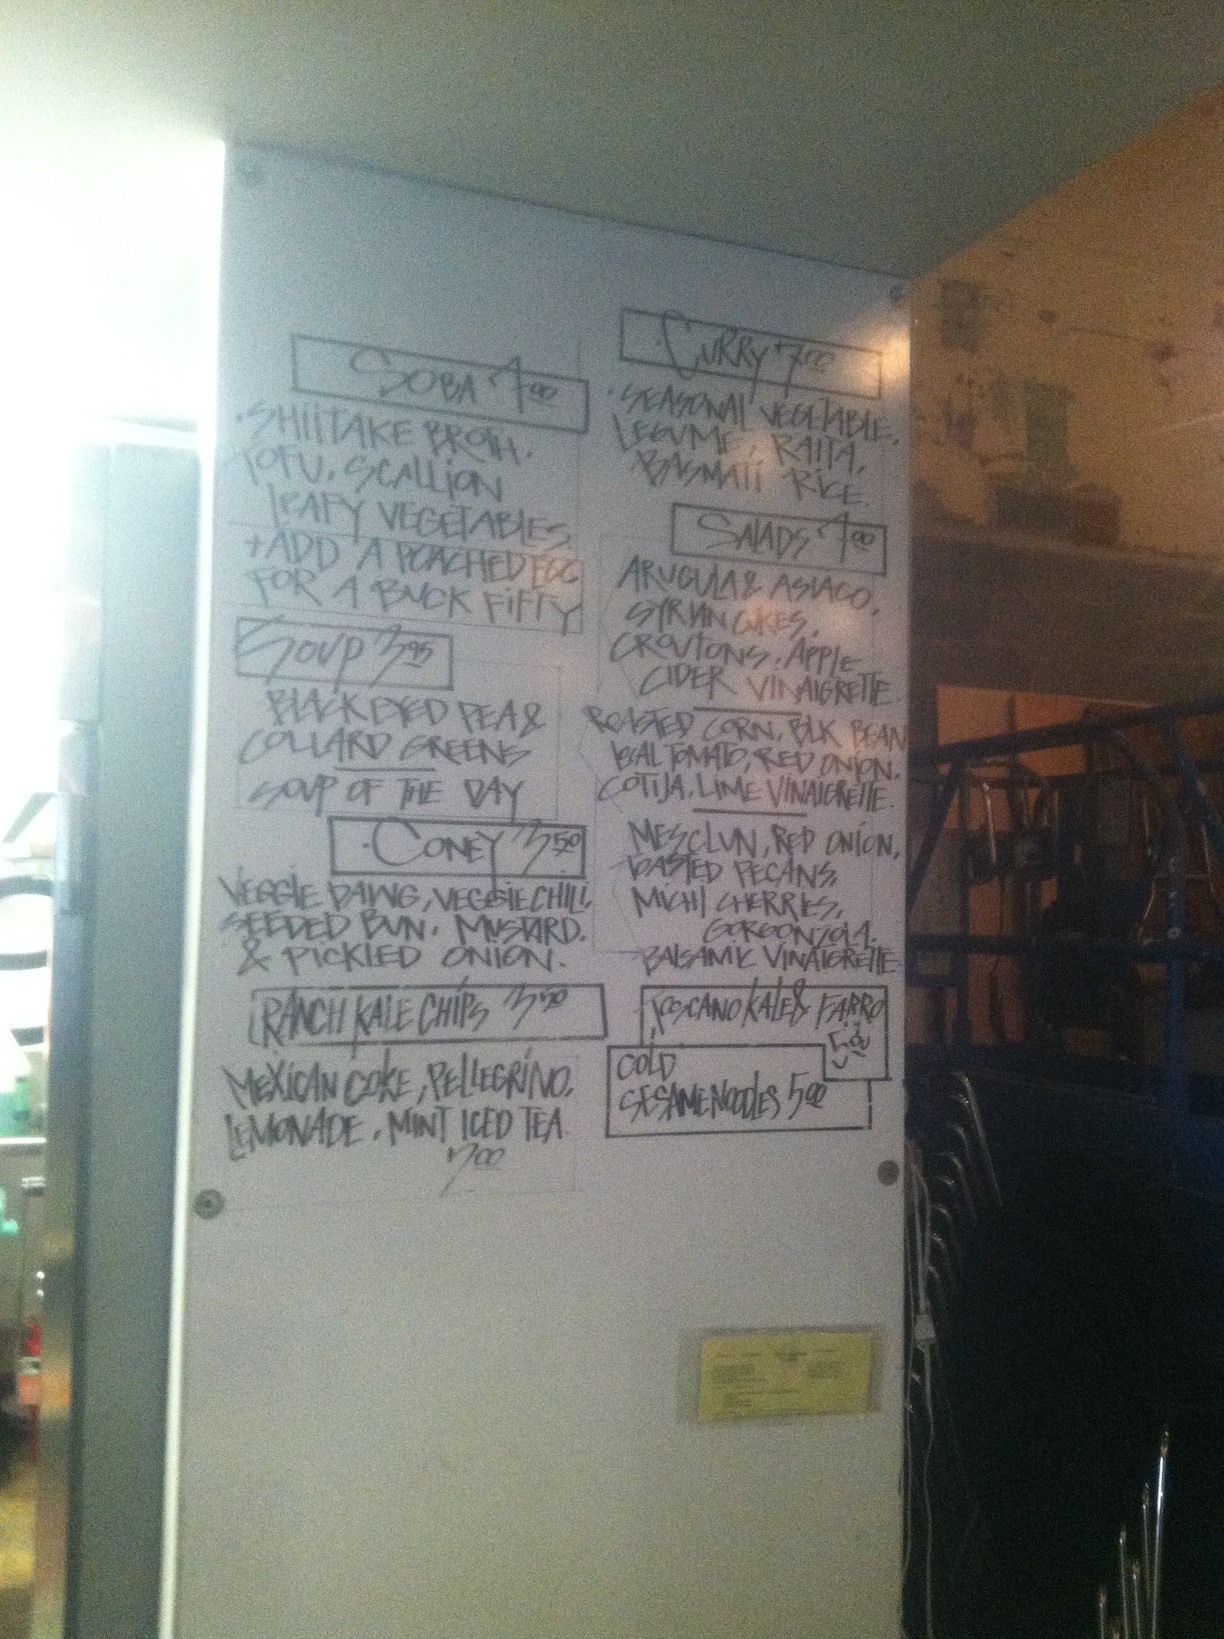 SOBA 7.00
·SHIITAKE BROTH.
TOFU, SCALLION
LEAFY VEGETABLES
+ADD A POACHED EGG
FOR A BUCK FIFTY
SOUP 3.95
BLACK EYED PEA &
COLLARD GREENS
SOUP OF THE DAY
·CONEY 3.50
VEGGIE DAWG, VEGGIE CHILI,
SEEDED BUN, MUSTARD.
& PICKLED ONION.
RANCH KALE CHIPS 3.50
MEXICAN COKE, PELLEGRINO,
LEMONADE, MINT ICED TEA
2.00
·CURRY 7.00
·SEASONAL VEGETABLE,
LEGUME, RAITA,
BASMATI RICE
SALADS 7.00
ARUGULA & ASIAGO,
SYRIAN CUKES,
CROUTONS, APPLE
CIDER VINAIGRETTE
ROASTED CORN, BLK BEAN
LOCAL TOMATO, RED ONION.
COTIJA, LIME VINAIGRETTE.
MESCLUN, RED ONION,
TOASTED PECANS,
MICH CHERRIES,
GORGONZOLA.
BALSAMIC VINAIGRETTE
TOSCANO KALE & FARRO
5.00
COLD
SESAME NOODLES 5.00